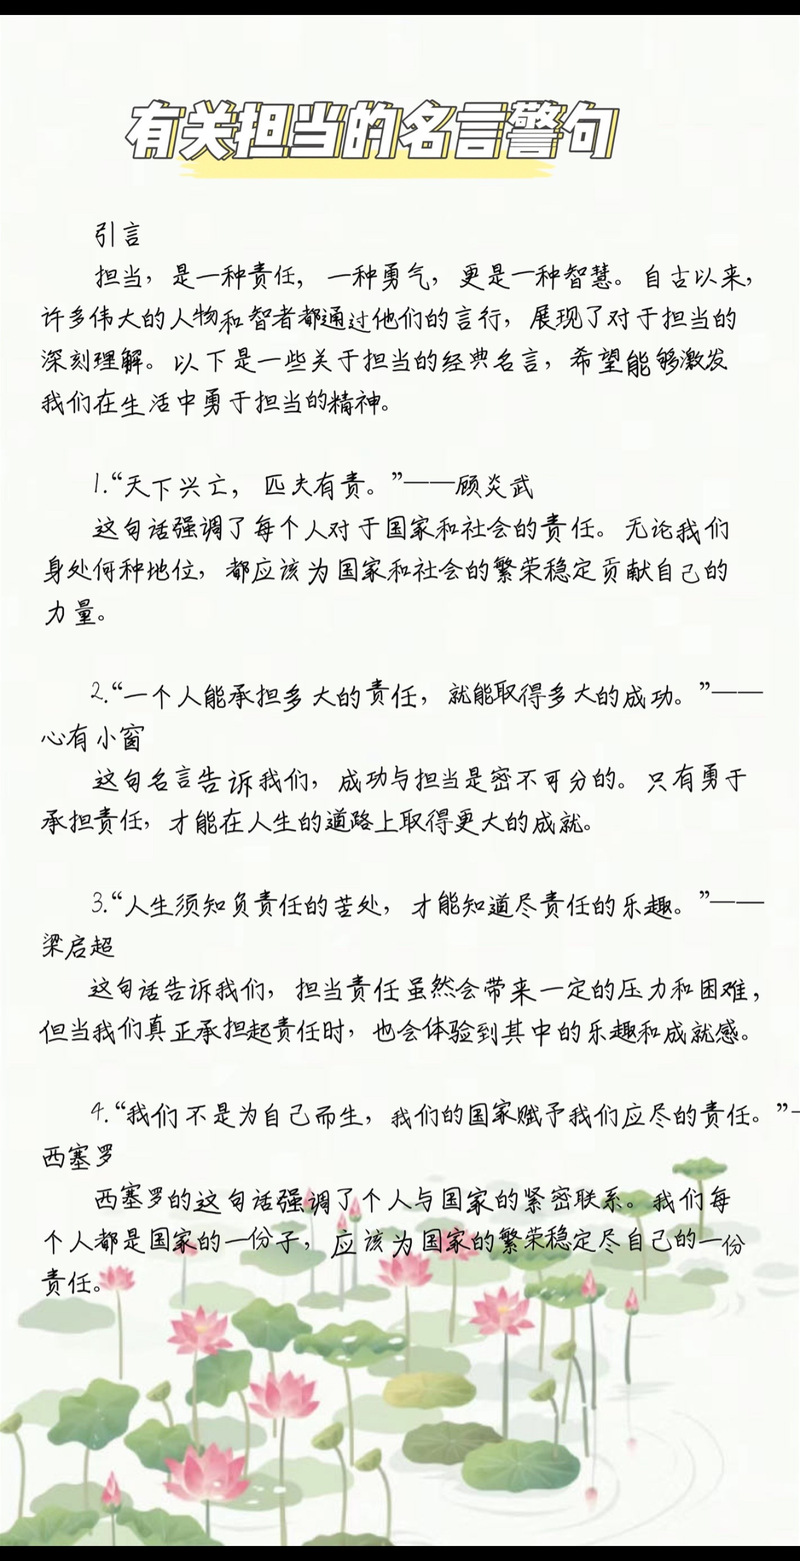 有关担当的名言警句
引言
担当，是一种责任，一种勇气，更是一种智慧。自古以来，
许多伟大的人物和智者都通过他们的言行，展现了对于担当的
深刻理解。以下是一些关于担当的经典名言，希望能够激发
我们在生活中勇于担当的精神。
1.“天下兴亡，匹夫有责。”——顾炎武
这句话强调了每个人对于国家和社会的责任。无论我们
身处何种地位，都应该为国家和社会的繁荣稳定贡献自己的
力量。
2.“一个人能承担多大的责任，就能取得多大的成功。”——
心有小窗
这句名言告诉我们，成功与担当是密不可分的。只有勇于
承担责任，才能在人生的道路上取得更大的成就。
3.“人生须知负责任的苦处，才能知道尽责任的乐趣。”——
梁启超
这句话告诉我们，担当责任虽然会带来一定的压力和困难，
但当我们真正承担起责任时，也会体验到其中的乐趣和成就感。
4.“我们不是为自己而生，我们的国家赋予我们应尽的责任。”—
西塞罗
西塞罗的这句话强调了个人与国家的紧密联系。我们每
个人都是国家的一份子，应该为国家的繁荣稳定尽自己的一份
责任。